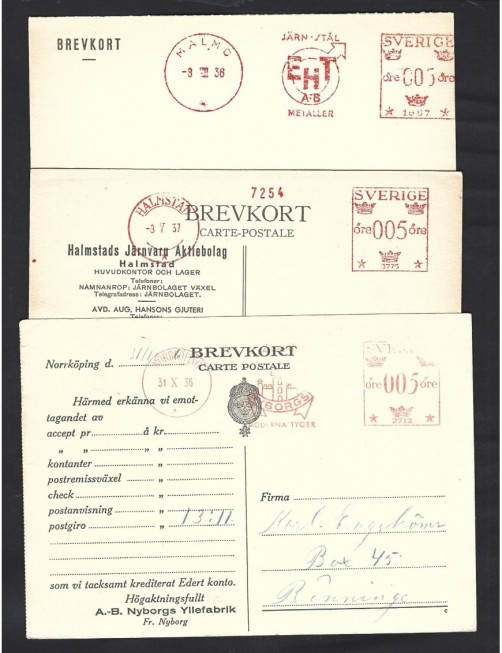 BREVKORT
MALMÖ
-8 VII 36
JÄRN-STÅL
EHT
A-B
METALLER
SVERIGE
öre 005 öre
7254
HALMSTAD
-3 V 37
BREVKORT
CARTE-POSTALE
SVERIGE
öre 005 öre
3775
Halmstads Järnvaru Aktiebolag
Halmstad
HUVUDKONTOR OCH LAGER
Telefoner:
NAMNANROP: JÄRNBOLAGET VÄXEL
Telegrafadress: JÄRNBOLAGET.
AVD. AUG. HANSONS GJUTERI
Telefoner:
Norrköping d.
BREVKORT
CARTE POSTALE
31 X 36
NYBORGS
MODERNA TYGER
öre 005 öre
2712
Härmed erkänna vi emot-
tagandet av
accept pr å kr.
„ „ „ „
kontanter „
postremissväxel „
check „
postanvisning „
postgiro „ 13:11
som vi tacksamt krediterat Edert konto.
Högaktningsfullt
A.-B. Nyborgs Yllefabrik
Fr. Nyborg
Firma
Karl
Box 45
Rönninge